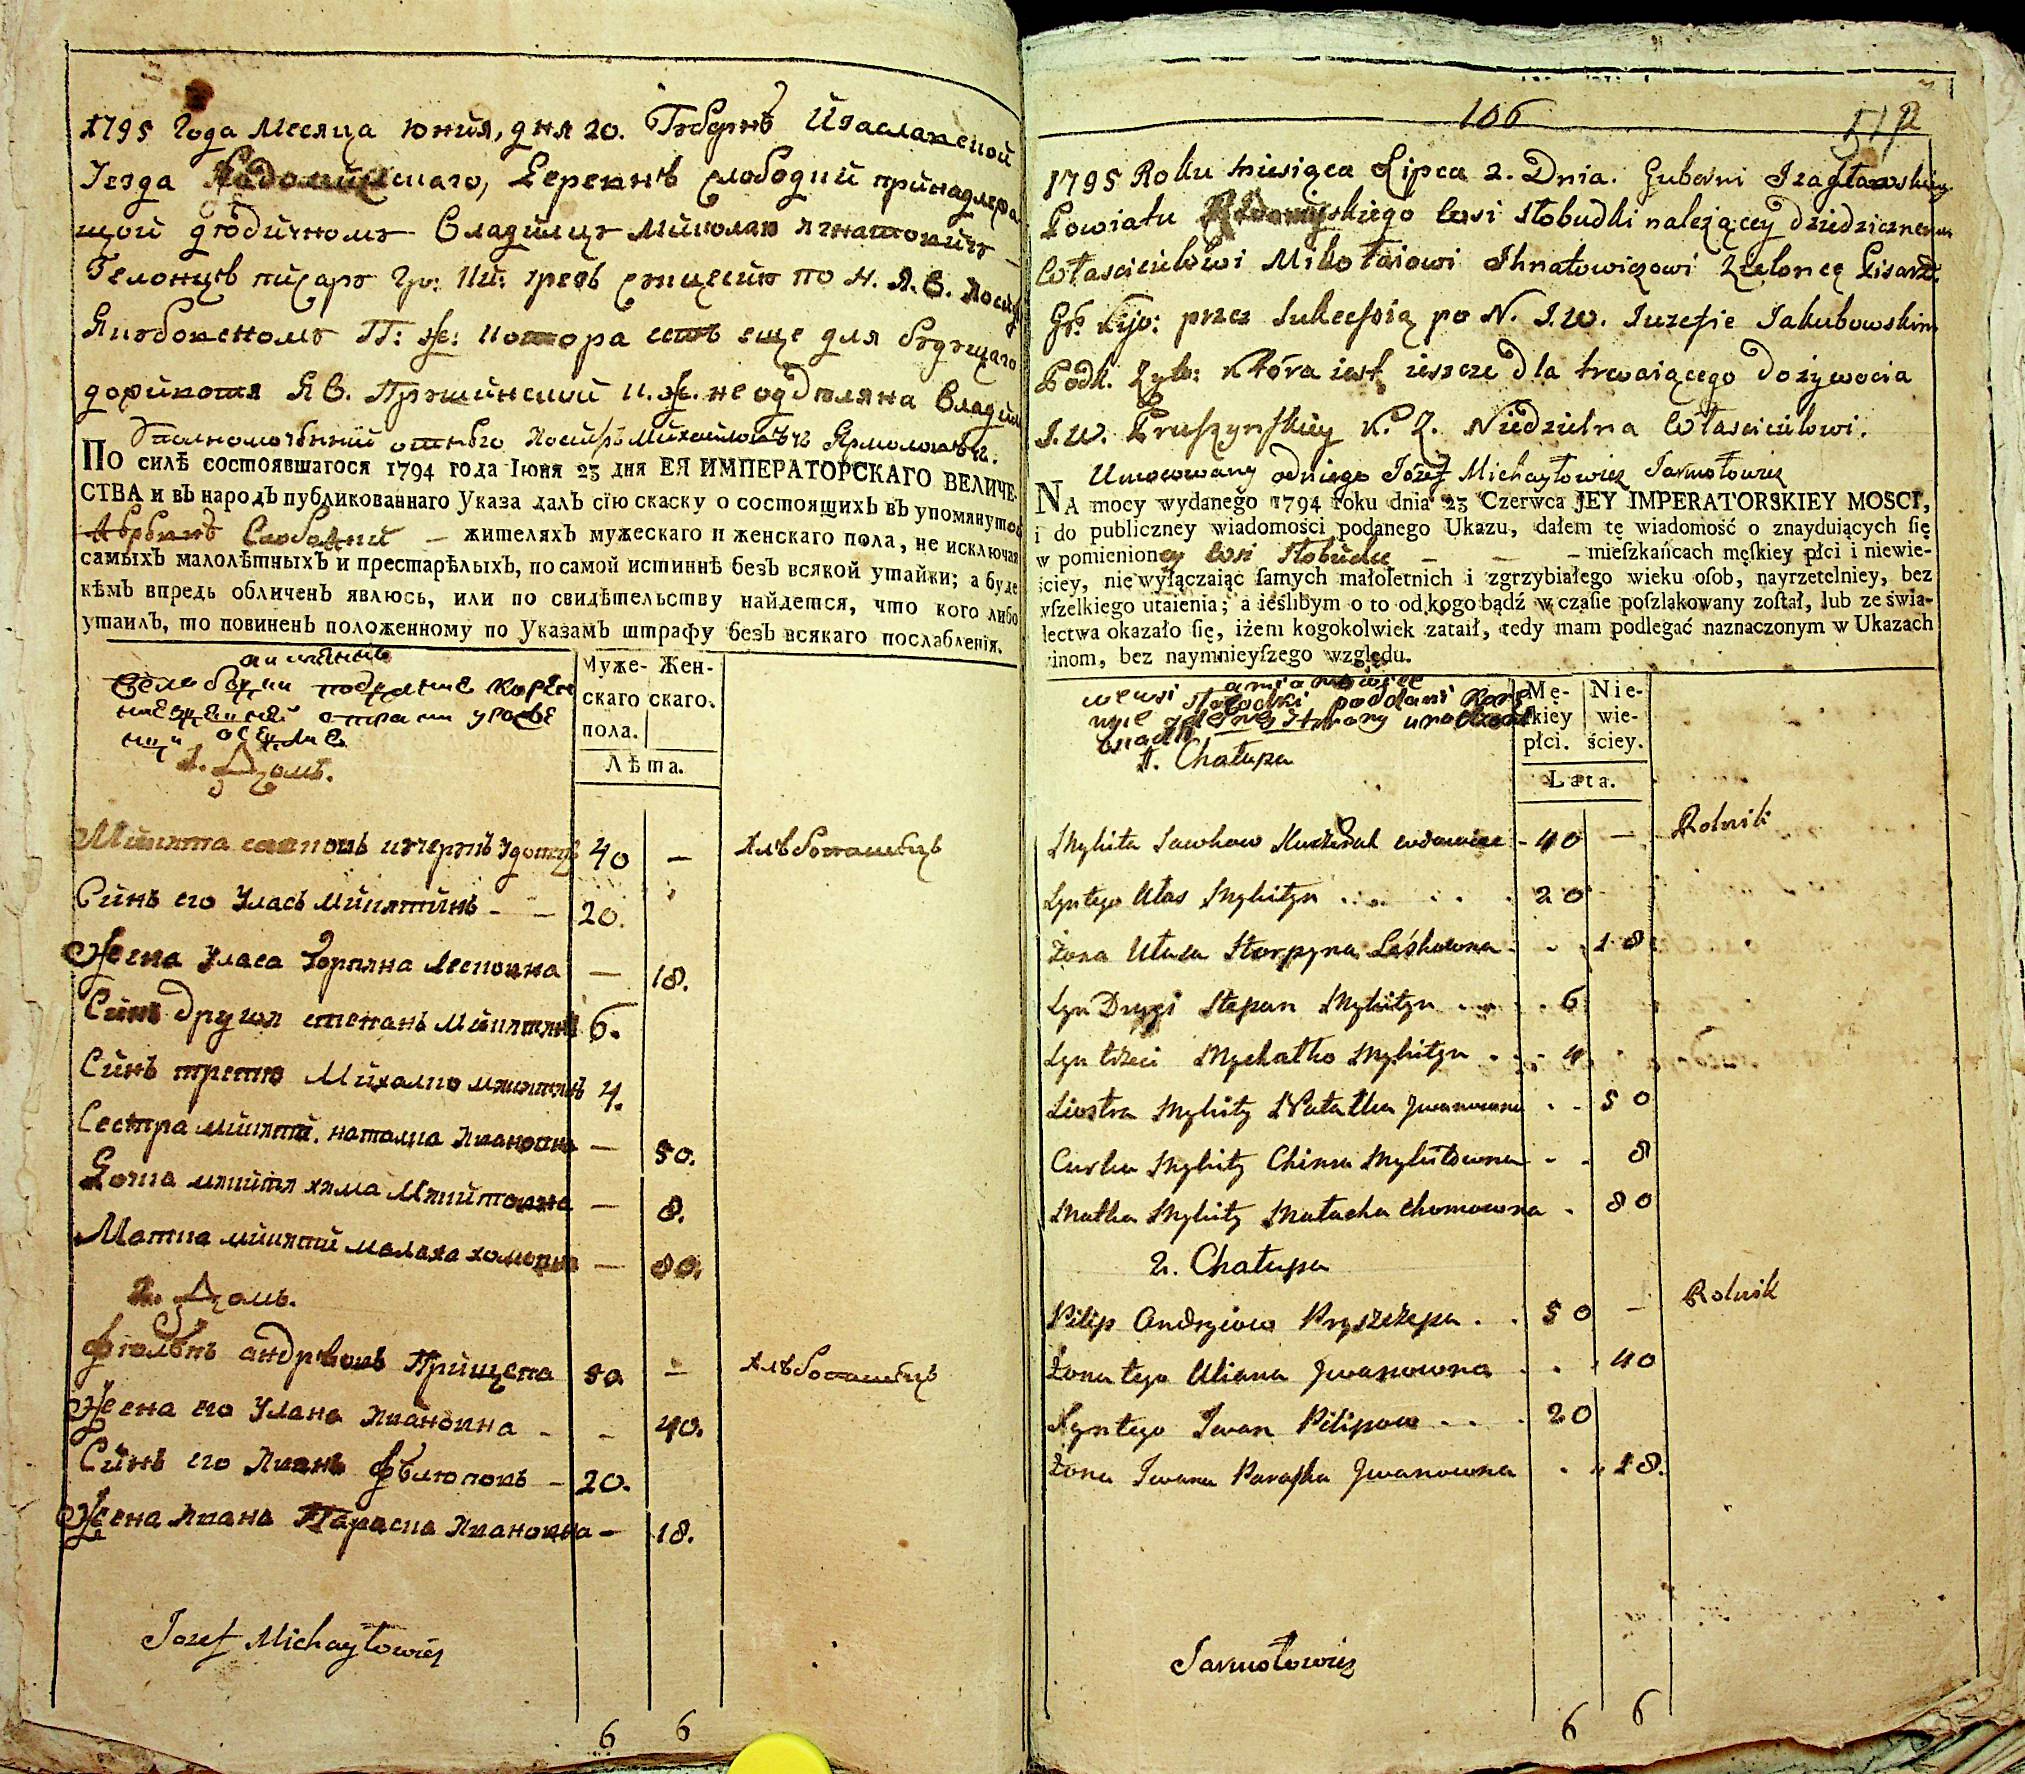 1795 Года Месяца Юния, дня 20. Губерни Изаславской
Уезда Радомишлскаго, Деревне Слободки принадлежа
щой дедичному Владилцу Миколаю Игнатовичу
Зелонце писару Гр: Ки: презъ сукцесию по Н. Я. В. Иосифу
Якубовскому П: Ж: котора есть еще для будущаго
дожывотя Я В. Прушинской К. Ж. не оддѣляна Владил
Уполномочений отъ его Иосифъ Михайловичъ Ярмоловичъ.
ПО силѣ состоявшагося 1794 года Iюня 23 дня ЕЯ ИМПЕРАТОРСКАГО ВЕЛИЧЕ-
СТВА и въ народъ публикованнаго Указа далъ сїю скаску о состоящихъ въ упомянутой
Деревне Слободки — жителяхъ мужескаго и женскаго пола, не исключая
самыхъ малолѣтныхъ и престарѣлыхъ, по самой истиннѣ безъ всякой утайки; а буде
кѣмъ впредь обличенъ явлюсь, или по свидѣтельству найдется, что кого либо
утаилъ, то повиненъ положенному по Указамъ штрафу безъ всякаго послабленїя.
а именно
Муже- Жен-
скаго скаго.
пола.
Лѣта.
1. Домъ.
Микита савковъ кучерукъ удовец 40 — хлѣбопашецъ
Синъ его Уласъ Микитинъ - — 20.
Жена Уласа Горпина Лесковна — 18.
Синъ другой степанъ Микитинъ 6.
Синъ третю Михалко микитинъ 4.
Сестра микити наталка Ивановна — 50.
Дочка микити хима Микитовна — 8.
Матка микити малаха хомовна — 80.
2. Домъ.
Филипъ андрѣовъ Прищепа 50 — хлѣбопашецъ
Жена его Уляна Ивановна - - 40.
Синъ его Иванъ Филиповъ — 20.
Жена Ивана Параска Ивановна — 18.
Jozef Michayłowicz
6 6
106
1795 Roku miesiąca Lipca 2. Dnia. Guberni Izasławskiey
Powiatu Radomyskiego Wsi Słobudki należącey dziedzicznemu
Właścicielowi Mikołaiowi Ihnatowiczowi Zieloncę Pisarz.
Gr. Kijo: przez Sukcessią po N. J. W. Juzefie Jakubowskim
Podk. Żyto: która iest ieszcze dla trwaiącego dożywocia
J. W. Pruszynskiey K. Ż. Niedzielna Właścicielowi.
Umocowany od niego Józef Michayłowicz Jarmołowicz
NA mocy wydanego 1794 roku dnia 23 Czerwca JEY IMPERATORSKIEY MOSCI,
i do publiczney wiadomości podanego Ukazu, dałem tę wiadomość o znayduiących ſię
w pomienioney wsi Słobudce — — — mieſzkańcach męſkiey płci i niewie-
ściey, nie wyłączaiąc ſamych małoletnich i zgrzybiałego wieku oſob, nayrzetelniey, bez
wſzelkiego utaienia; a ieślibym o to od kogo bądź w czaſie poſzlakowany zoſtał, lub ze świa-
dectwa okazało ſię, iżem kogokolwiek zataił, tedy mam podlegać naznaczonym w Ukazach
winom, bez naymnieyſzego względu.
a mianowicie
we wsi Słobodki poddani
Mę- Nie-
ſkiey wie-
płci. ściey.
Lata.
1. Chałupa
Mykita Sawkow Kucżeruk wdowiec - 40 — Rolnik
Syn tego Ułas Mykityn . . . 20
Żona Ułasa Horpyna Leśkowna . . 18
Syn Drugi Stepan Mykityn . . . 6
Syn trzeci Mychałko Mykityn . . 4
Siostra Mykity Natałka Jwanowna . . 50
Curka Mykity Chima Mykitowna - . 8
Matka Mykity Małacha Chomowna . 80
2. Chałupa
Pilip Andryiow Pryszczepa . . 50 — Rolnik
Żona tego Uliana Jwanowna . . . 40
Syn tego Iwan Pilipow . . . 20
Żona Iwana Paraſka Jwanowna . . 18.
Jarmołowicz
6 6